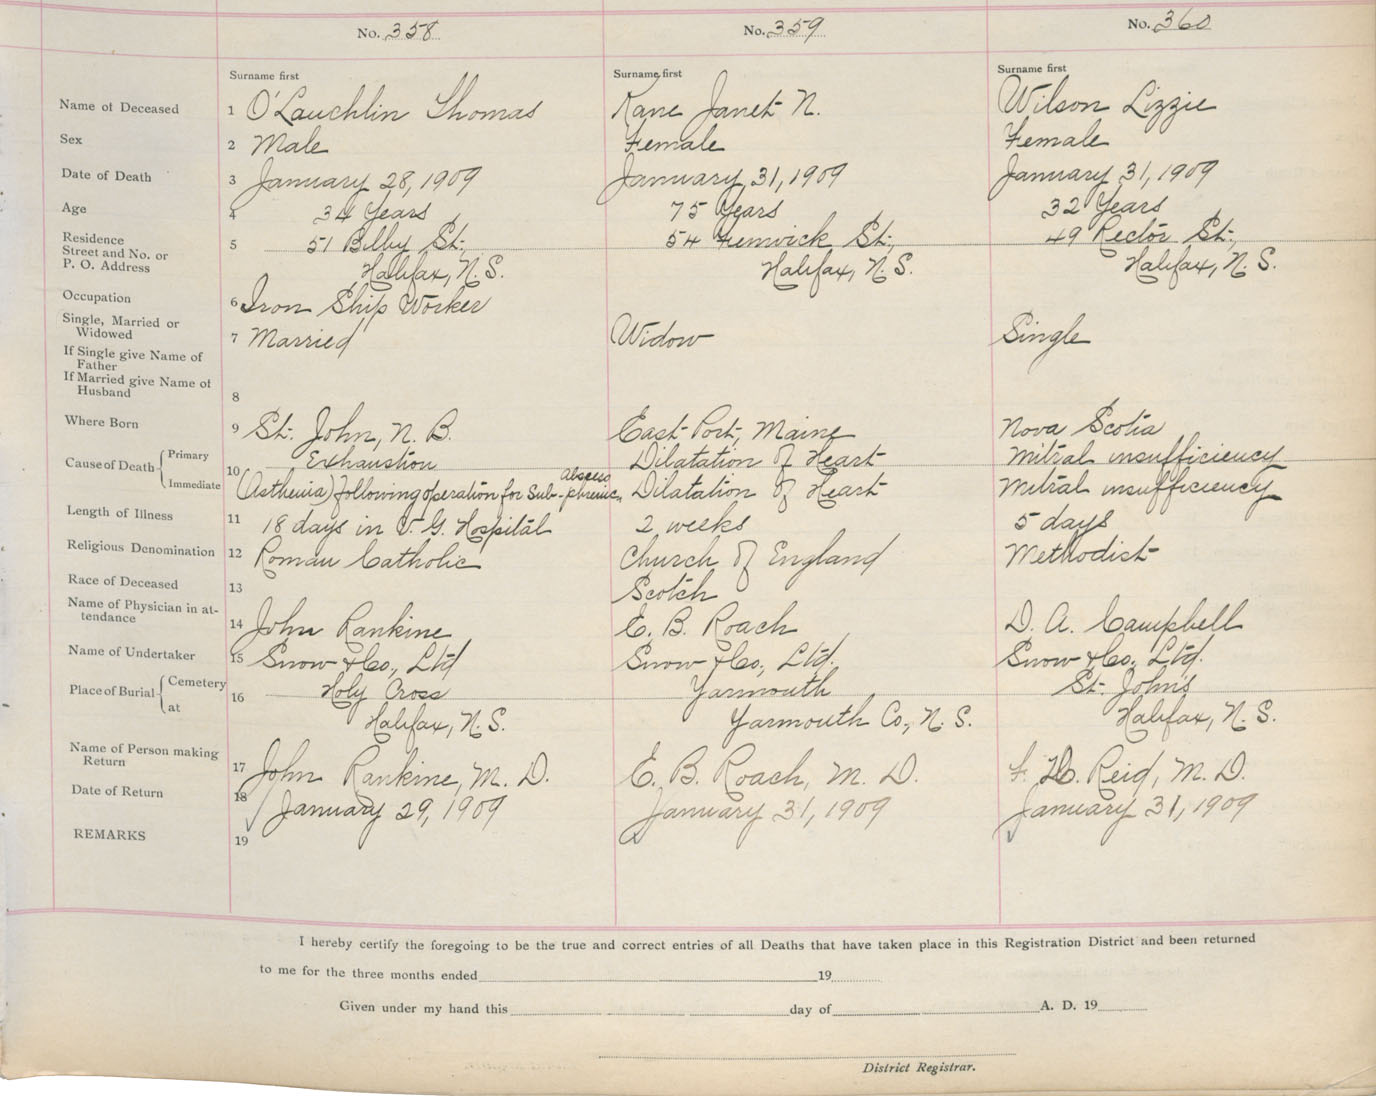 No. 358 No. 359 No. 360
Surname first Surname first Surname first
Name of Deceased 1 O'Lauchlin Thomas Kane Janet N. Wilson Lizzie
Sex 2 Male Female Female
Date of Death 3 January 28, 1909 January 31, 1909 January 31, 1909
Age 4 34 Years 75 Years 32 Years
Residence
Street and No. or 5 51 Bilby St., 54 Fenwick St., 49 Rector St.,
P. O. Address Halifax, N. S. Halifax, N. S. Halifax, N. S.
Occupation 6 Iron Ship Worker
Single, Married or
Widowed 7 Married Widow Single
If Single give Name of
Father
If Married give Name of
Husband 8
Where Born 9 St. John, N. B. East Port, Maine Nova Scotia
Cause of Death Primary 10 Exhaustion Dilatation of Heart Mitral insufficiency
Immediate (Asthenia) following operation for Sub-phrenic abscess Dilatation of Heart Mitral insufficiency
Length of Illness 11 18 days in V. G. Hospital 2 weeks 5 days
Religious Denomination 12 Roman Catholic Church of England Methodist
Race of Deceased 13 Scotch
Name of Physician in at-
tendance 14 John Rankine E. B. Roach D. A. Campbell
Name of Undertaker 15 Snow & Co., Ltd Snow & Co., Ltd. Snow & Co., Ltd.
Place of Burial Cemetery 16 Holy Cross Yarmouth St. John's
at Halifax, N. S. Yarmouth Co., N. S. Halifax, N. S.
Name of Person making
Return 17 John Rankine, M. D. E. B. Roach, M. D. Reid, M. D.
Date of Return 18 January 29, 1909 January 31, 1909 January 31, 1909
REMARKS 19
I hereby certify the foregoing to be the true and correct entries of all Deaths that have taken place in this Registration District and been returned
to me for the three months ended 19
Given under my hand this day of A. D. 19
District Registrar.